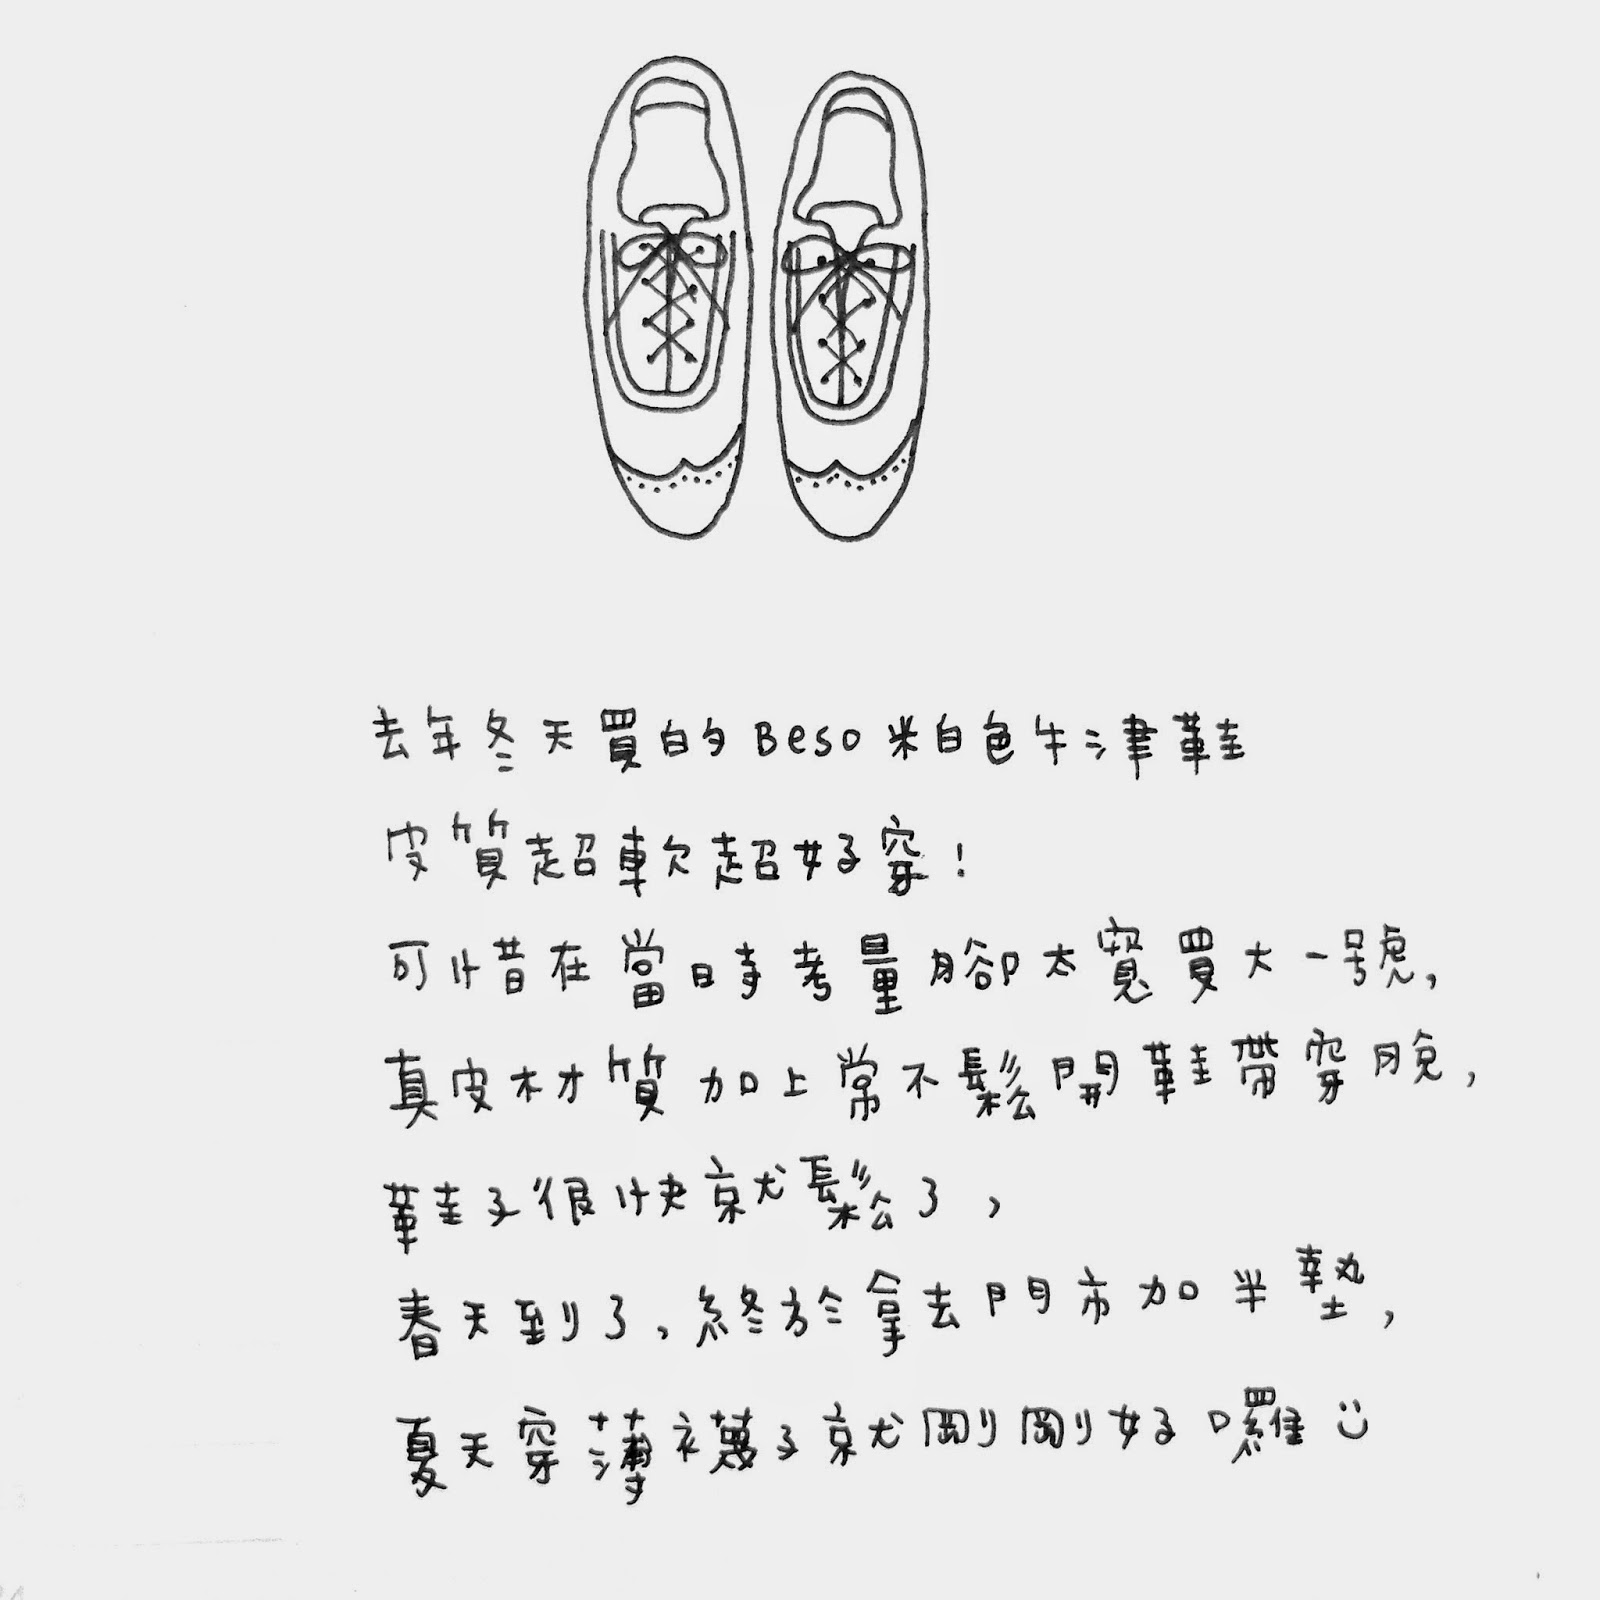 去年冬天買的Beso米白色牛津鞋
皮質超軟超好穿!
可惜在當時考量腳太寬買大一號,
真皮材質加上常不鬆開鞋帶穿脫,
鞋子很快就鬆了,
春天到了,終於拿去門市加半墊,
夏天穿薄襪子就剛剛好囉